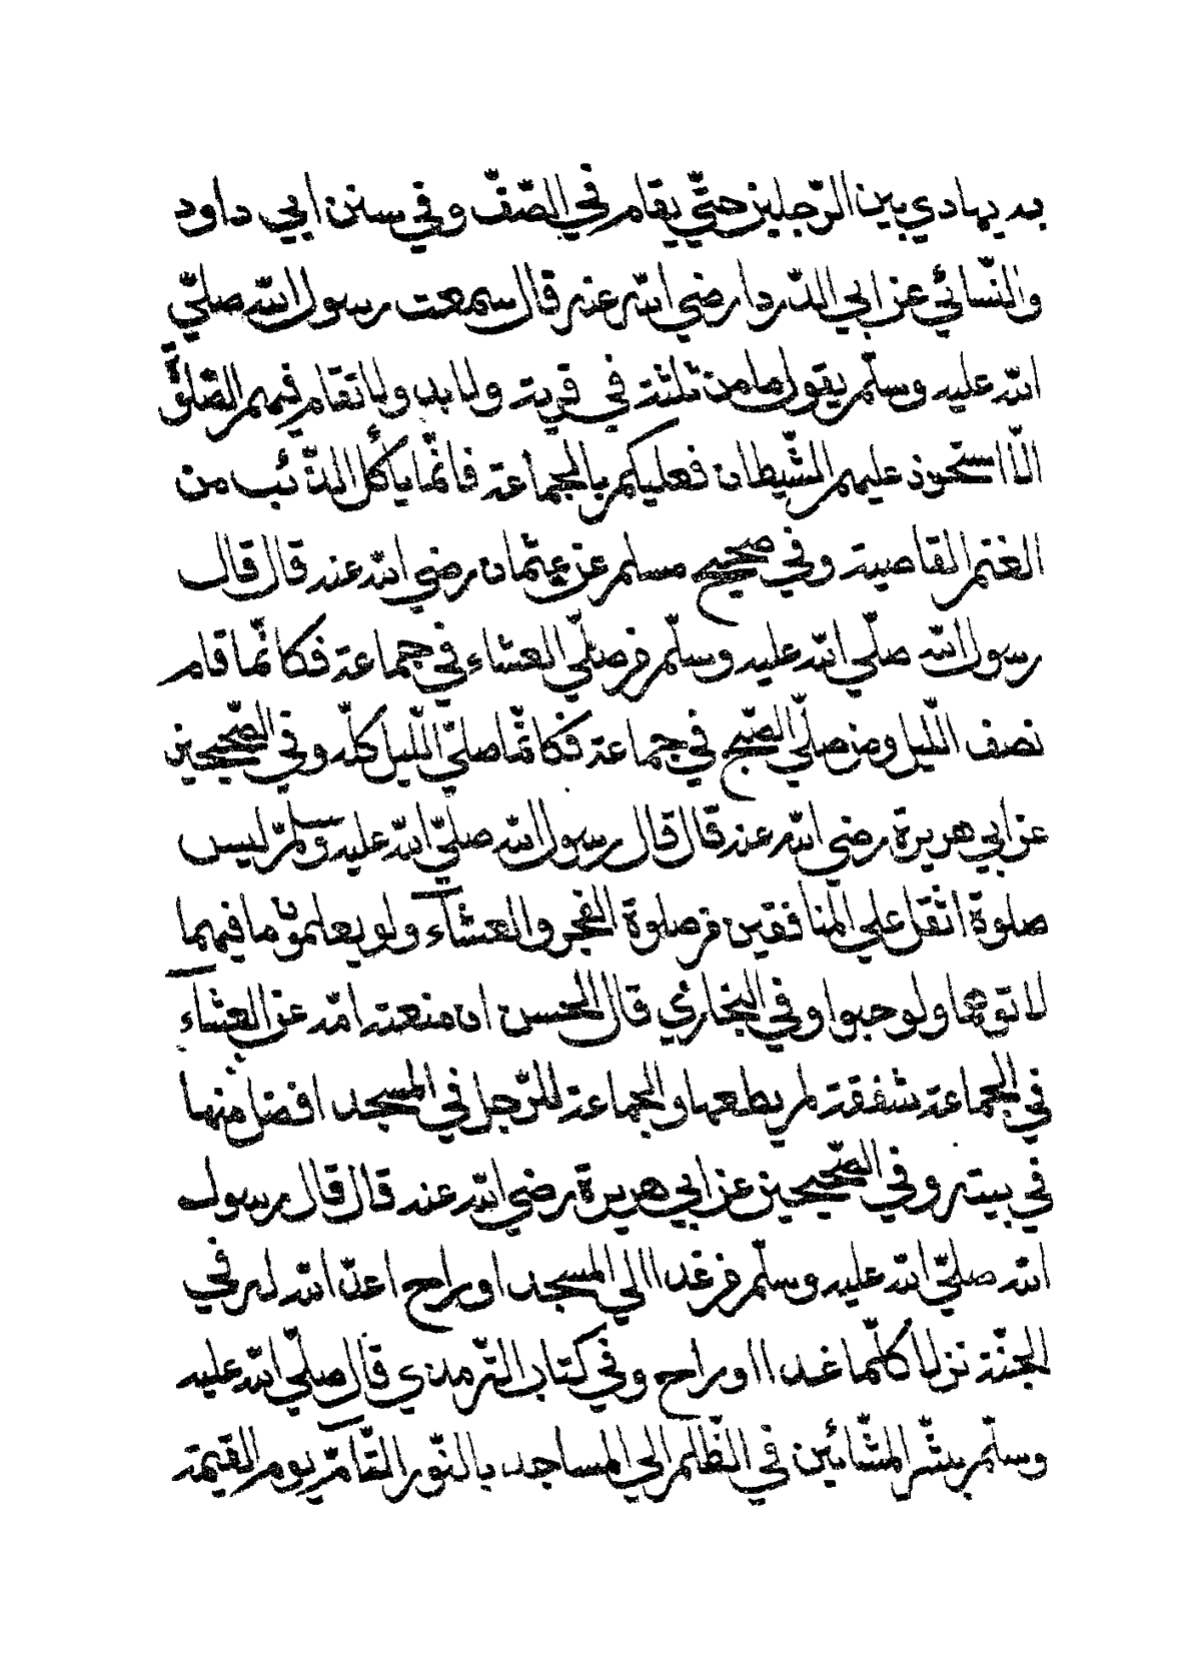 به يهادي بين الرّجلين حتّي يقام في الصّفّ وفي سنن ابي داود
والنّسائي عن ابي الدّردا رضي اللّه عنه قال سمعت رسول اللّه صلّي
اللّه عليه وسلّم يقول ما من ثلثة في قرية ولا بدو لا تقام فيهم الصّلوة
الّا استحوذ عليهم الشّيطان فعليكم بالجماعة فانّما يأكل الذّئب من
الغنم القاصية وفي صحيح مسلم عن عثمان رضي اللّه عنه قال قال
رسول اللّه صلّي اللّه عليه وسلّم من صلّي العشاء في جماعة فكانّما قام
نصف اللّيل ومن صلّي الصّبح في جماعة فكانّما صلّي اللّيل كلّه وفي الصّحيحين
عن ابي هريرة رضي اللّه عنه قال قال رسول اللّه صلّي اللّه عليه وسلّم ليس
صلوة اثقل علي المنافقين من صلوة الفجر والعشآء ولو يعلمون ما فيهما
لاتوهما ولو حبوا وفي البخاري قال الحسن ان منعته امّه عن العشآء
في الجماعة شفقة لم يطعها والجماعة للرّجل في المسجد افضل منها
في بيته وفي الصّحيحين عن ابي هريرة رضي اللّه عنه قال قال رسول
اللّه صلّي اللّه عليه وسلّم من غدا الي المسجد او راح اعدّ اللّه له في
الجنّة نزلا كلّما غدا او راح وفي كتاب التّرمذي قال صلّي اللّه عليه
وسلّم بشّر المشّائين في الظّلم الي المساجد بالنّور التّآمّ يوم القيمة